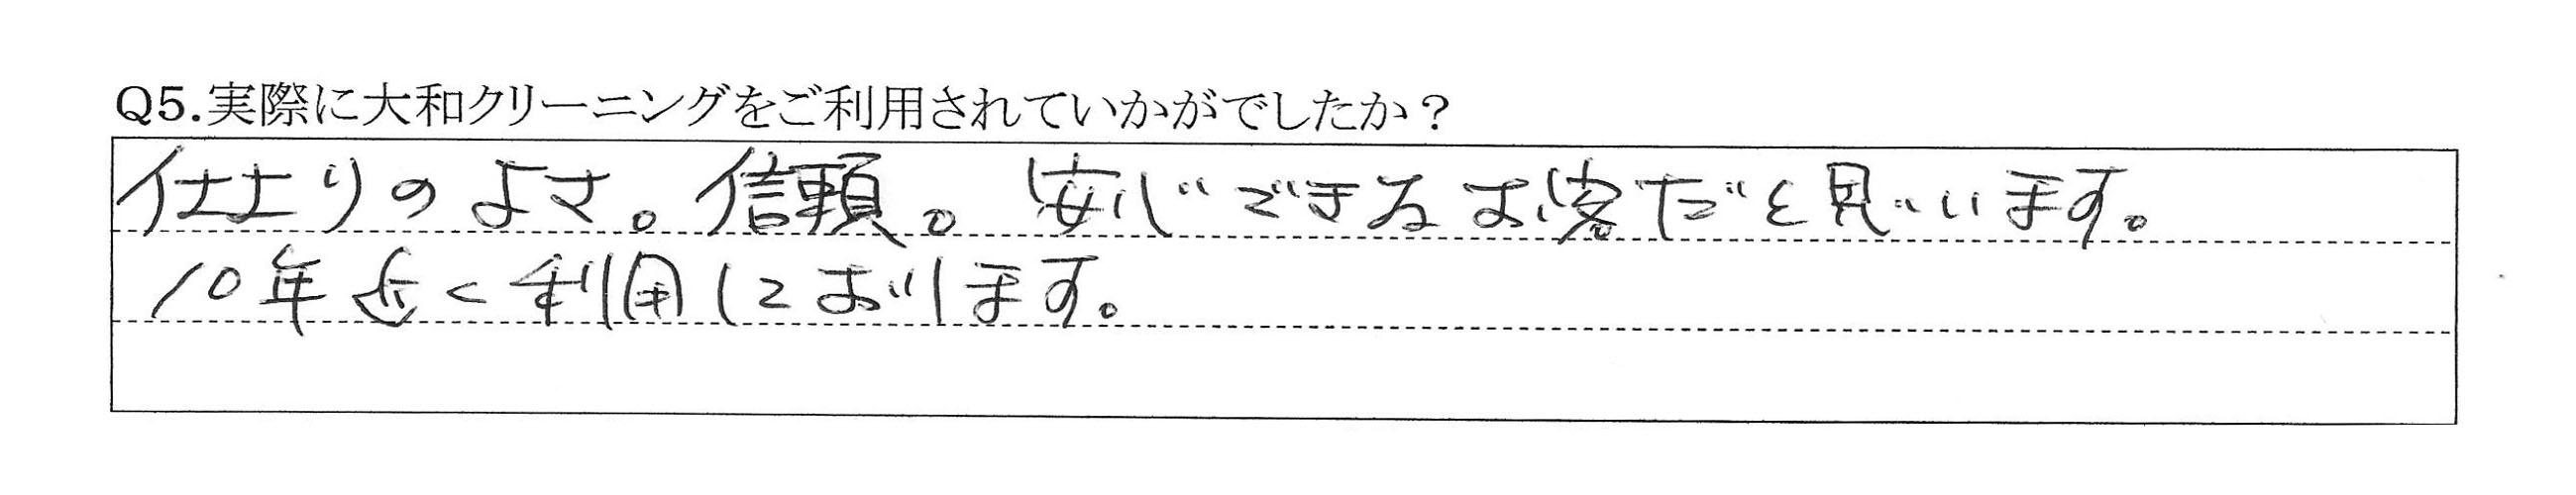 Q5.実際に大和クリーニングをご利用されていかがでしたか？
仕上りのよさ。信頼。安心できるお客だと思います。
10年近く利用しております。